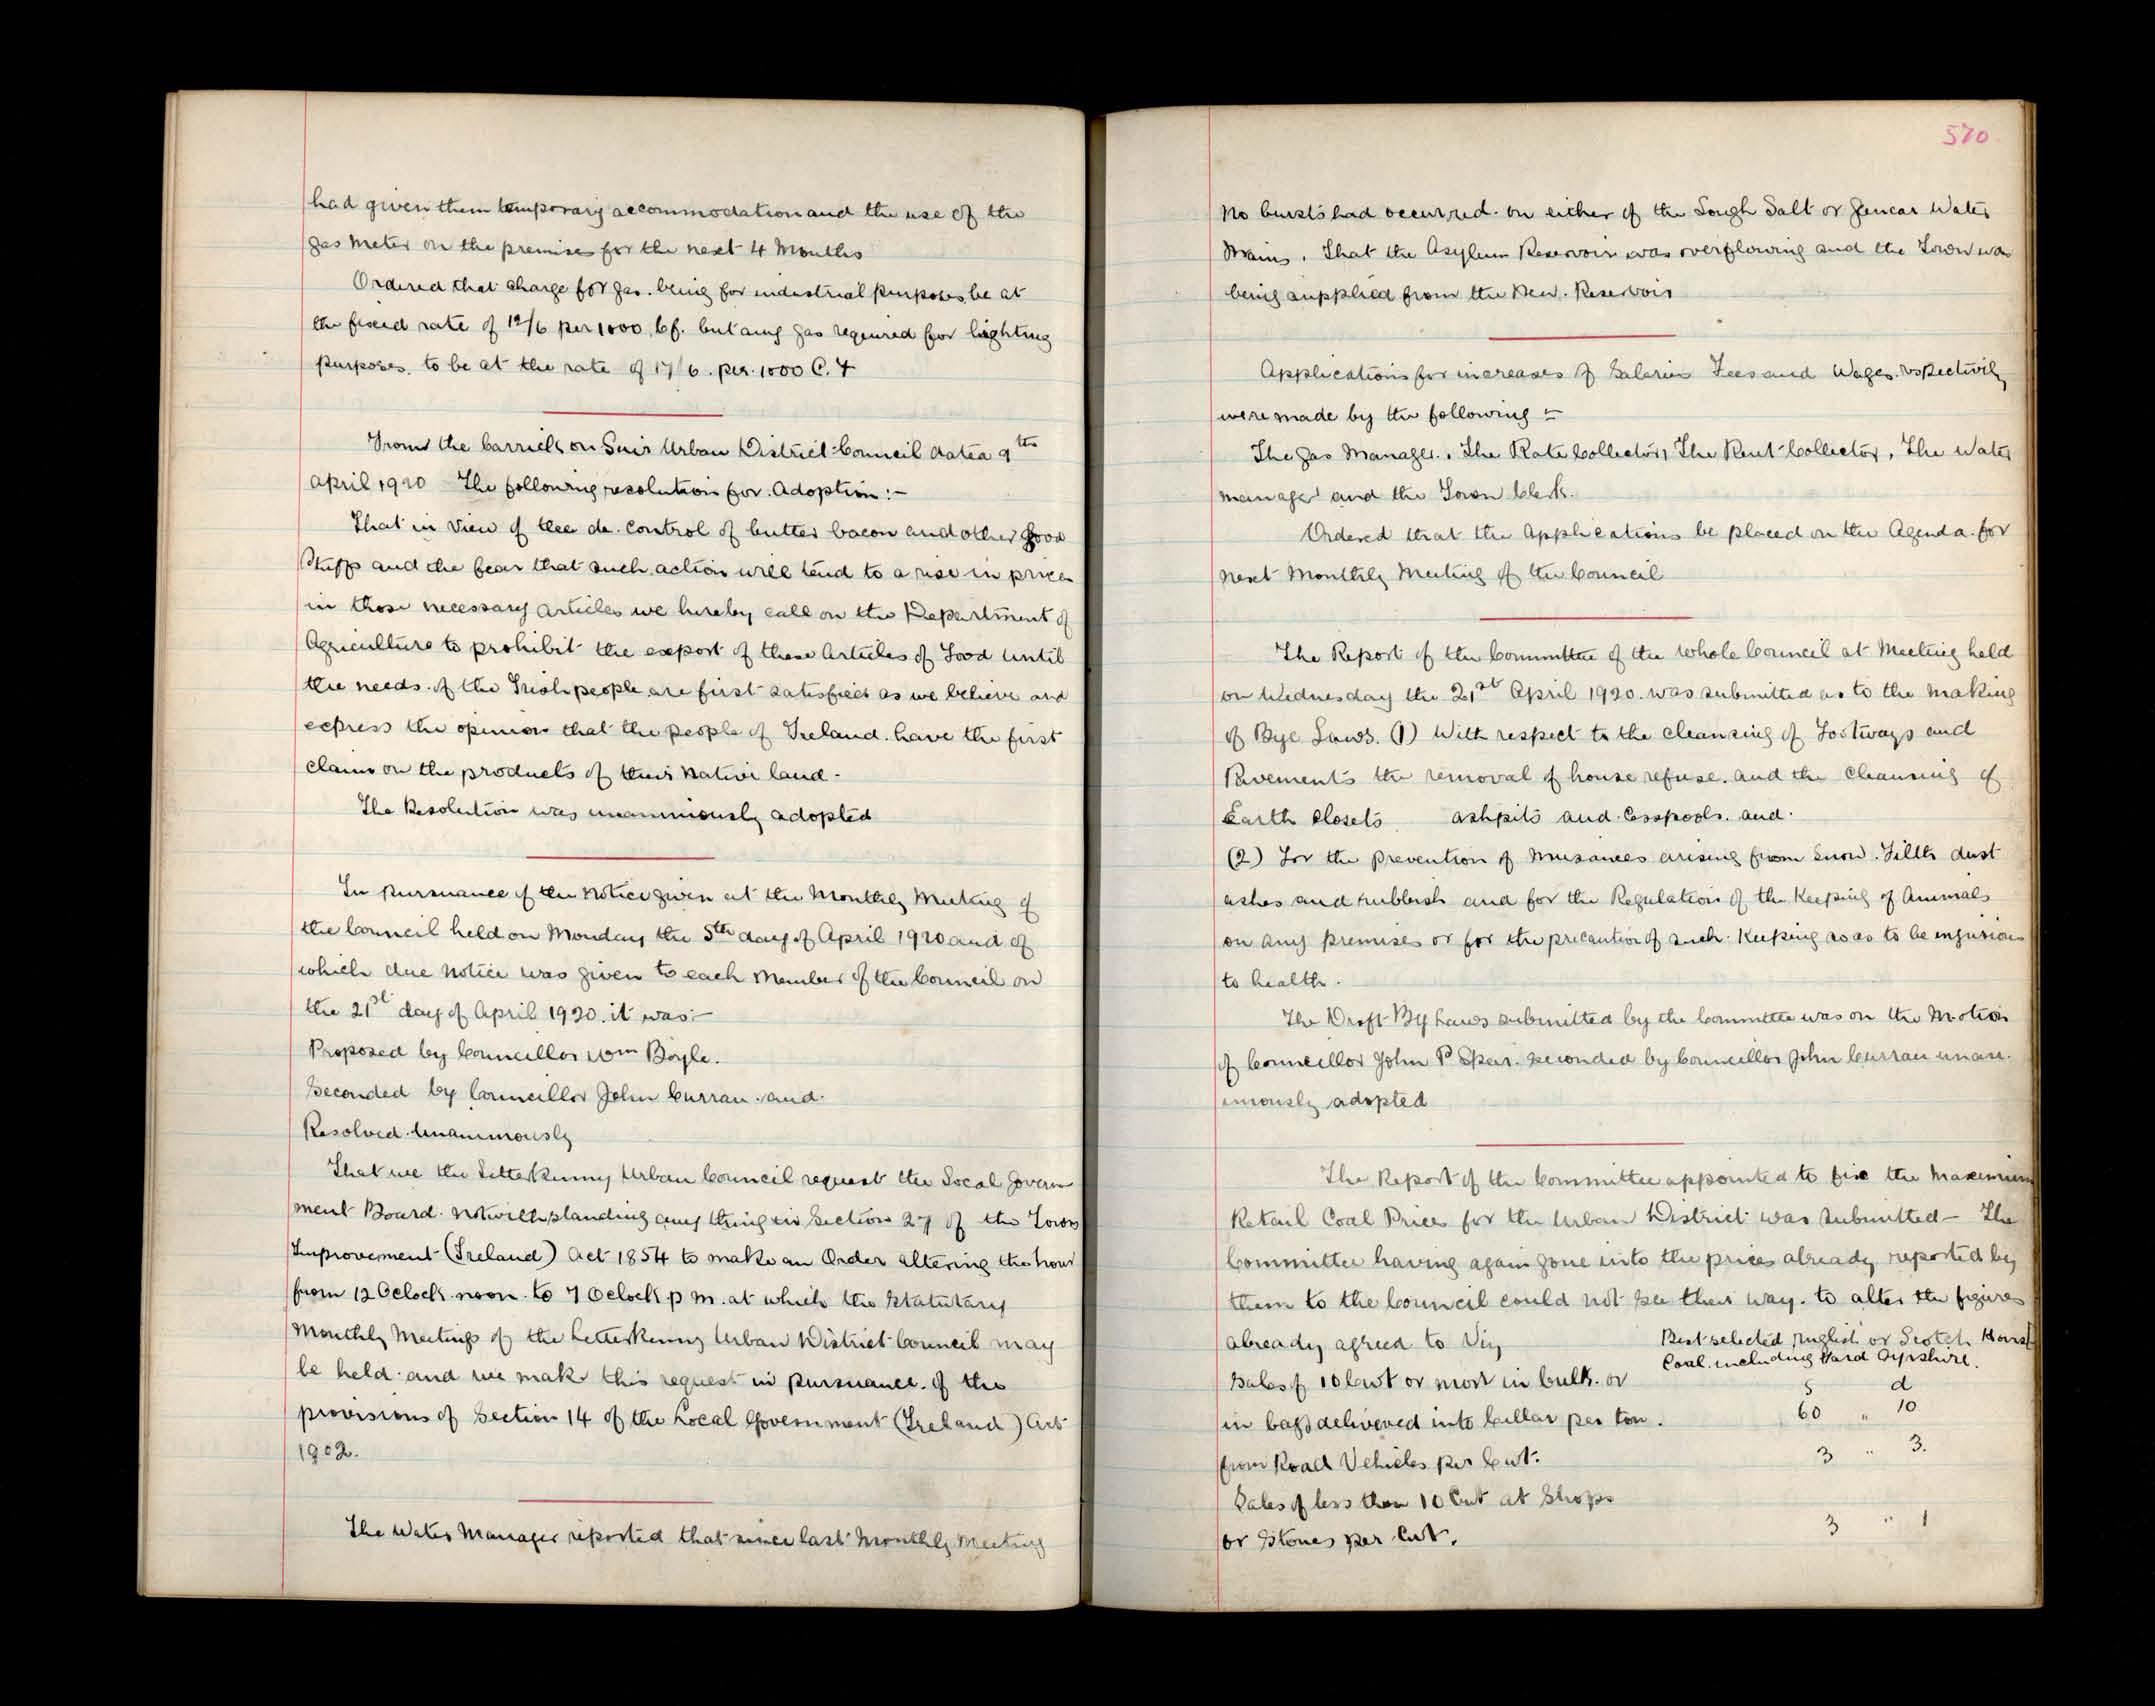 had given them temporary accommodation and the use of the
gas meter on the premises for the next 4 Months
Ordered that charge for gas. being for industrial purposes be at
the fixed rate of 12/6 per 1000 c.f. but any gas required for lighting
purposes. to be at the rate of 17/6. per. 1000 C. f
From the Carrick on Suir Urban District Council dated 9th
April 1920 The following resolution for. Adoption:-
That in view of the de-control of butter bacon and other food
Stuffs and the fear that such action will tend to a rise in prices
in those necessary articles we hereby call on the Department of
Agriculture to prohibit the export of these Articles of Food until
the needs of the Irish people are first satisfied as we believe and
express the opinion that the people of Ireland. have the first
claim on the products of their Native land.
The Resolution was unanimously adopted
In pursuance of the Notice given at the Monthly Meeting of
the Council held on Monday the 5th day of April 1920 and of
which due Notice was given to each Member of the Council on
the 21st day of April 1920. it was:-
Proposed by Councillor Wm Boyle.
Seconded by Councillor John Curran. and.
Resolved. Unanimously
That we the Letterkenny Urban Council request the Local Govern
ment Board. notwithstanding any thing in Section 27 of the Towns
Improvement (Ireland) Act 1854 to make an Order altering the hour
from 12 Oclock. noon. to 7 Oclock p m. at which the Statutary
Monthly Meetings of the Letterkenny Urban District Council may
be held. and we make this request in pursuance. of the
provisions of Section 14 of the Local Government (Ireland) Act
1902.
The Water Manager reported that since last Monthly Meeting
570
No bursts had occurred. on either of the Lough Salt or Glencar Water
Mains. That the Asylum Reservoir was overflowing and the Town was
being supplied from the New. Reservoir
Applications for increases of Salaries Fees and Wages. respectively
were made by the following :-
The Gas Manager., The Rate Collector, The Rent Collector, The Water
manager and the Town Clerk.
Ordered that the Applications be placed on the Agenda. for
next Monthly Meeting of the Council
The Report of the Committee of the whole Council at Meeting held
on Wednesday the 21st April 1920. was submitted as to the Making
of Bye Laws. (1) With respect to the cleansing of Footways and
Pavements the removal of house refuse. and the Cleansing of
Earth closets ashpits and Cesspools. and.
(2) For the prevention of Nuisances arising from Snow. Filth dust
ashes and rubbish and for the Regulation of the Keeping of Animals
on any premises or for the precaution of such. Keeping so as to be injurious
to health.
The Draft Bye Laws submitted by the Committee was on the Motion
of Councillor John P Speer. seconded by Councillor John Curran unan-
imously adopted
The Report of the Committee appointed to fix the Maximum
Retail Coal Prices for the Urban District was Submitted - The
Committee having again gone into the prices already reported by
them to the Council could not see their way. to alter the figures
already agreed to Viz Best selected English or Scotch House
Coal including Hard Ayrshire.
Sales of 10 Cwt or more in bulk. or s d
in bags delivered into Cellar per ton. 60 " 10
from Road Vehicles per Cwt. 3 " 3.
Sales of less than 10 Cwt at Shops
or Stores per Cwt. 3 " 1